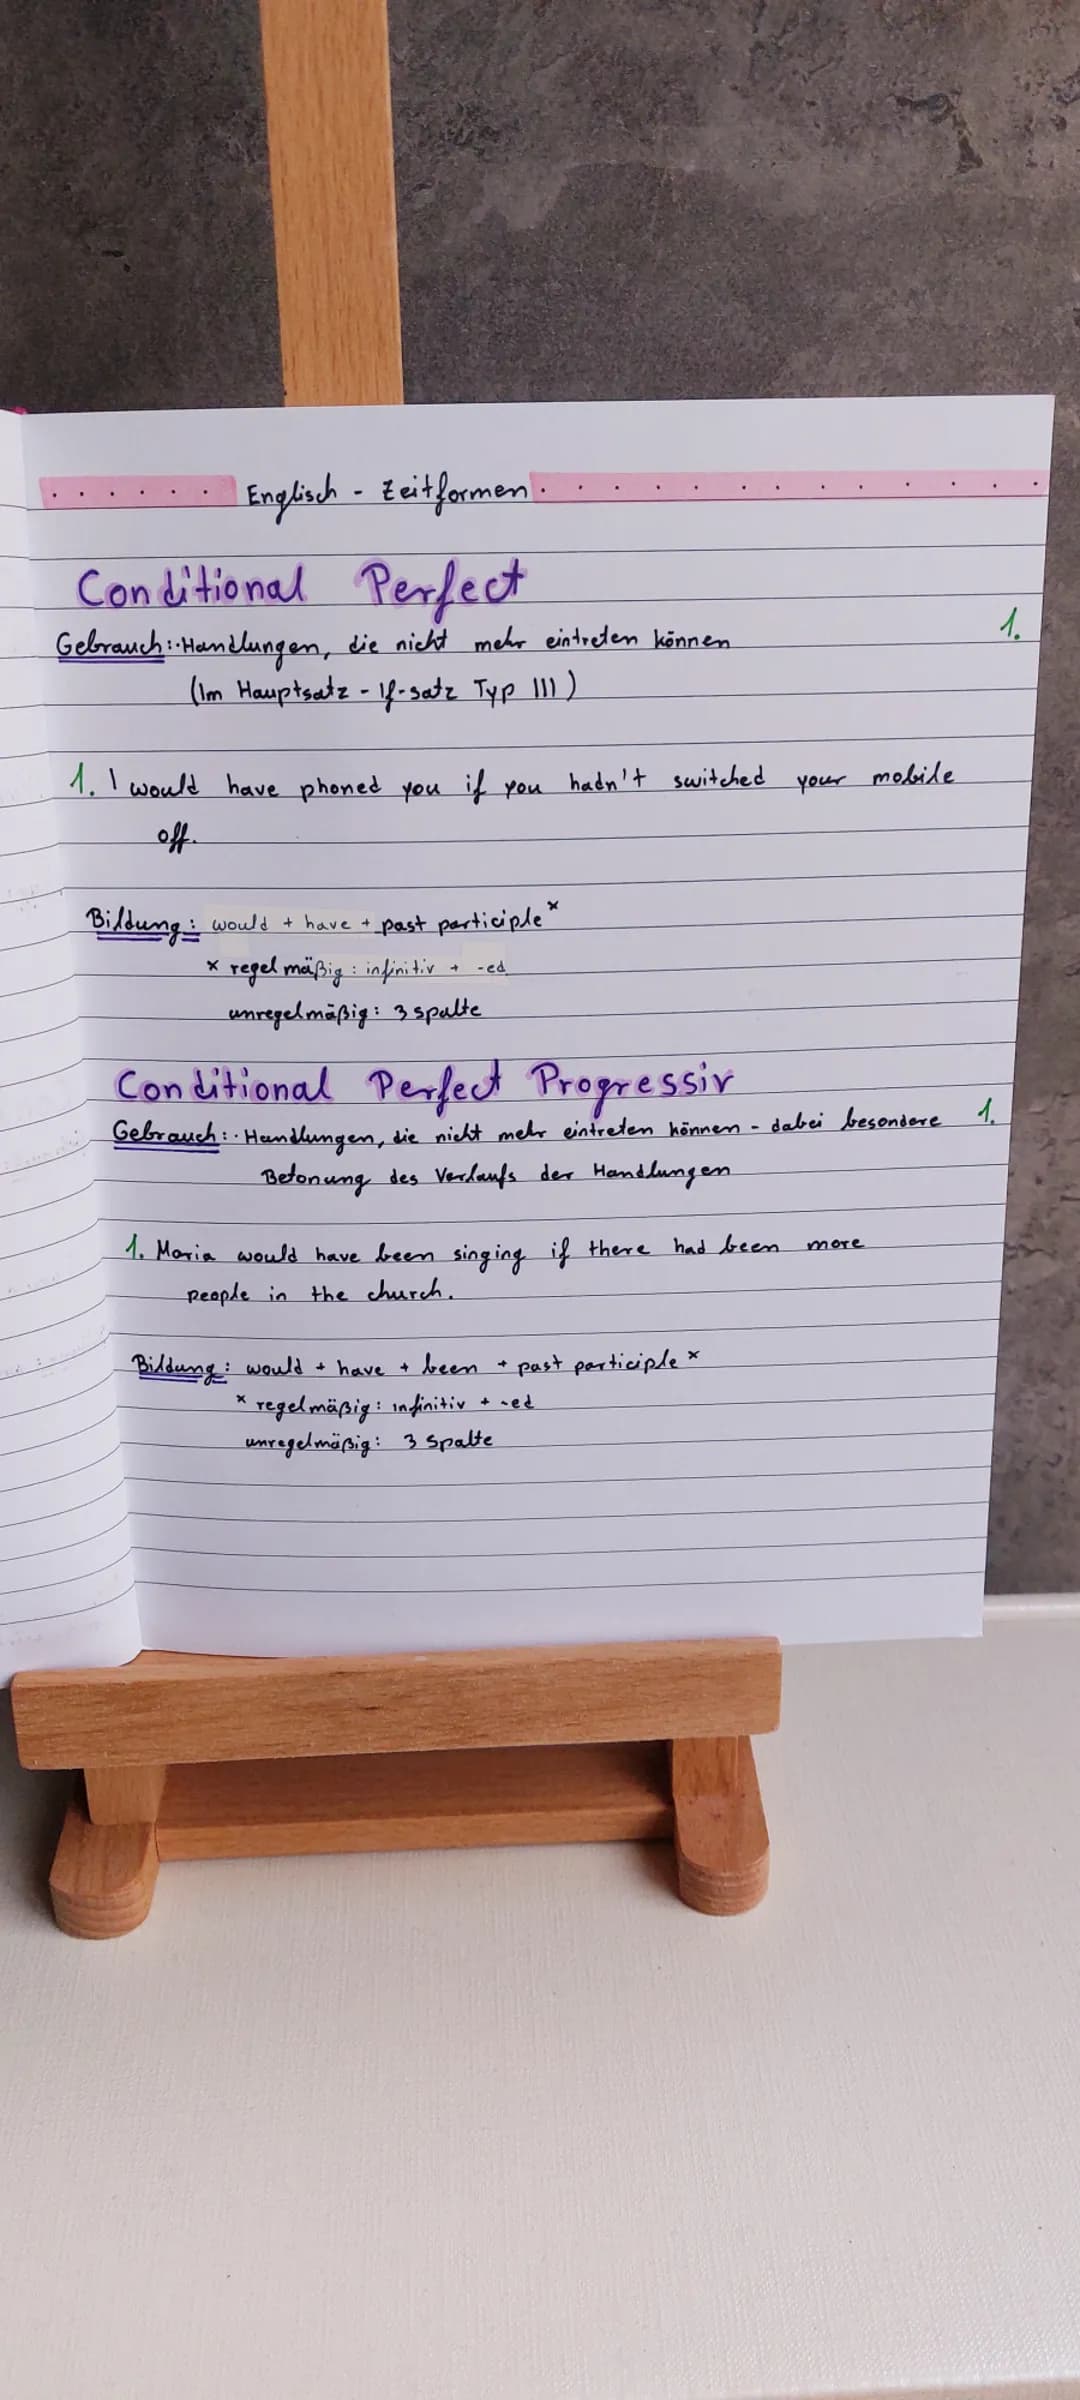 Englisch - Zeitformen
Conditional Perfect
Gebrauch: · Handlungen, die nicht mehr eintreten können 1.
(Im Hauptsatz - If-satz Typ III)
1. I would have phoned you if you hadn't switched your mobile
off.
Bildung: would + have + past participle *
* regelmäßig: infinitiv + -ed
unregelmäßig: 3 spalte
Conditional Perfect Progressiv
Gebrauch: · Handlungen, die nicht mehr eintreten können - dabei besondere 1.
Betonung des Verlaufs der Handlungen
1. Maria would have been singing if there had been more
people in the church.
Bildung: would + have + been + past participle *
* regelmäßig: infinitiv + -ed
unregelmäßig: 3 Spalte